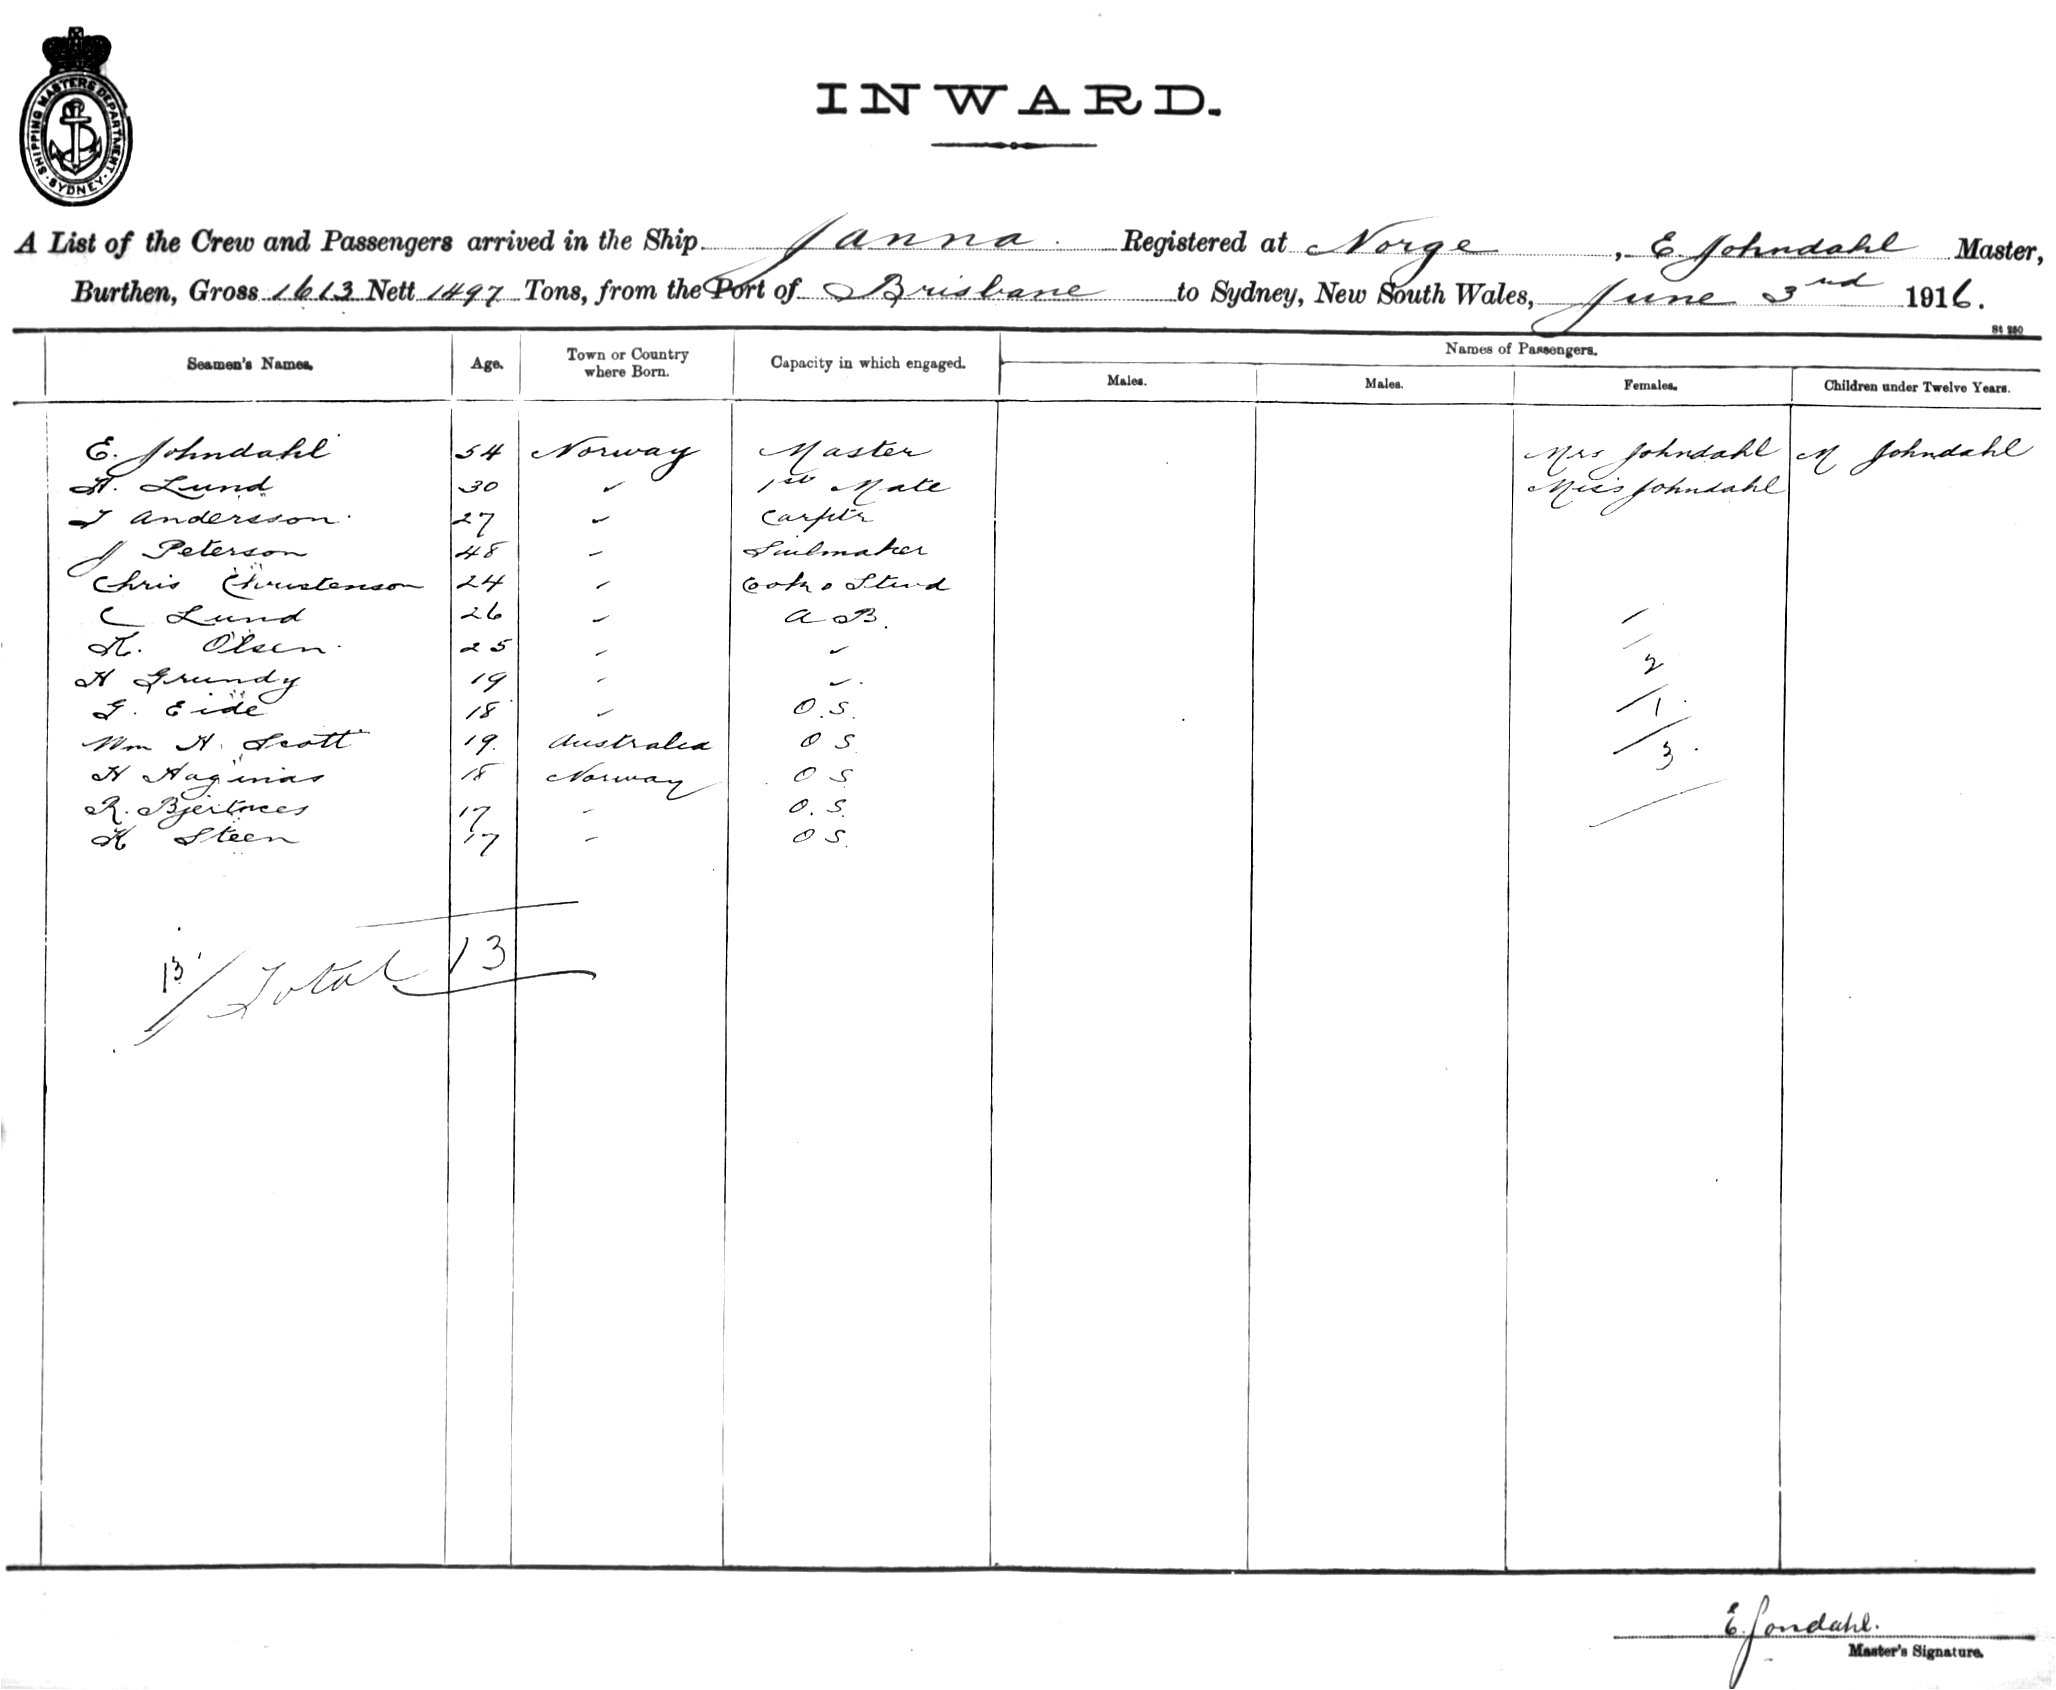 SHIPPING MASTERS DEPARTMENT · SYDNEY ·
INWARD.
A List of the Crew and Passengers arrived in the Ship Janna. Registered at Norge, E Johndahl Master,
Burthen, Gross 1613 Nett 1497 Tons, from the Port of Brisbane to Sydney, New South Wales, June 3rd 1916.
St 280
Seamen's Names. Age. Town or Country where Born. Capacity in which engaged. Names of Passengers.
Males. Males. Females. Children under Twelve Years.
E. Johndahl 54 Norway Master Mrs Johndahl M Johndahl
A. Lund 30 " 1st Mate Miss Johndahl
J Andersson 27 " Carptr
J Peterson 48 " Sailmaker
Chris Christenson 24 " Cook & Stwd
C Lund 26 " A B.
K. Olsen 25 " "
H Grundy 19 " " 2
G. Eide 18 " O.S. 1
Wm H. Scott 19. Australia O S 3
H Haginas 18 Norway O S
R. Bjertnces 17 " O.S.
K Steen 17 " O S.
13 Total 13
E. Jondahl.
Master's Signature.